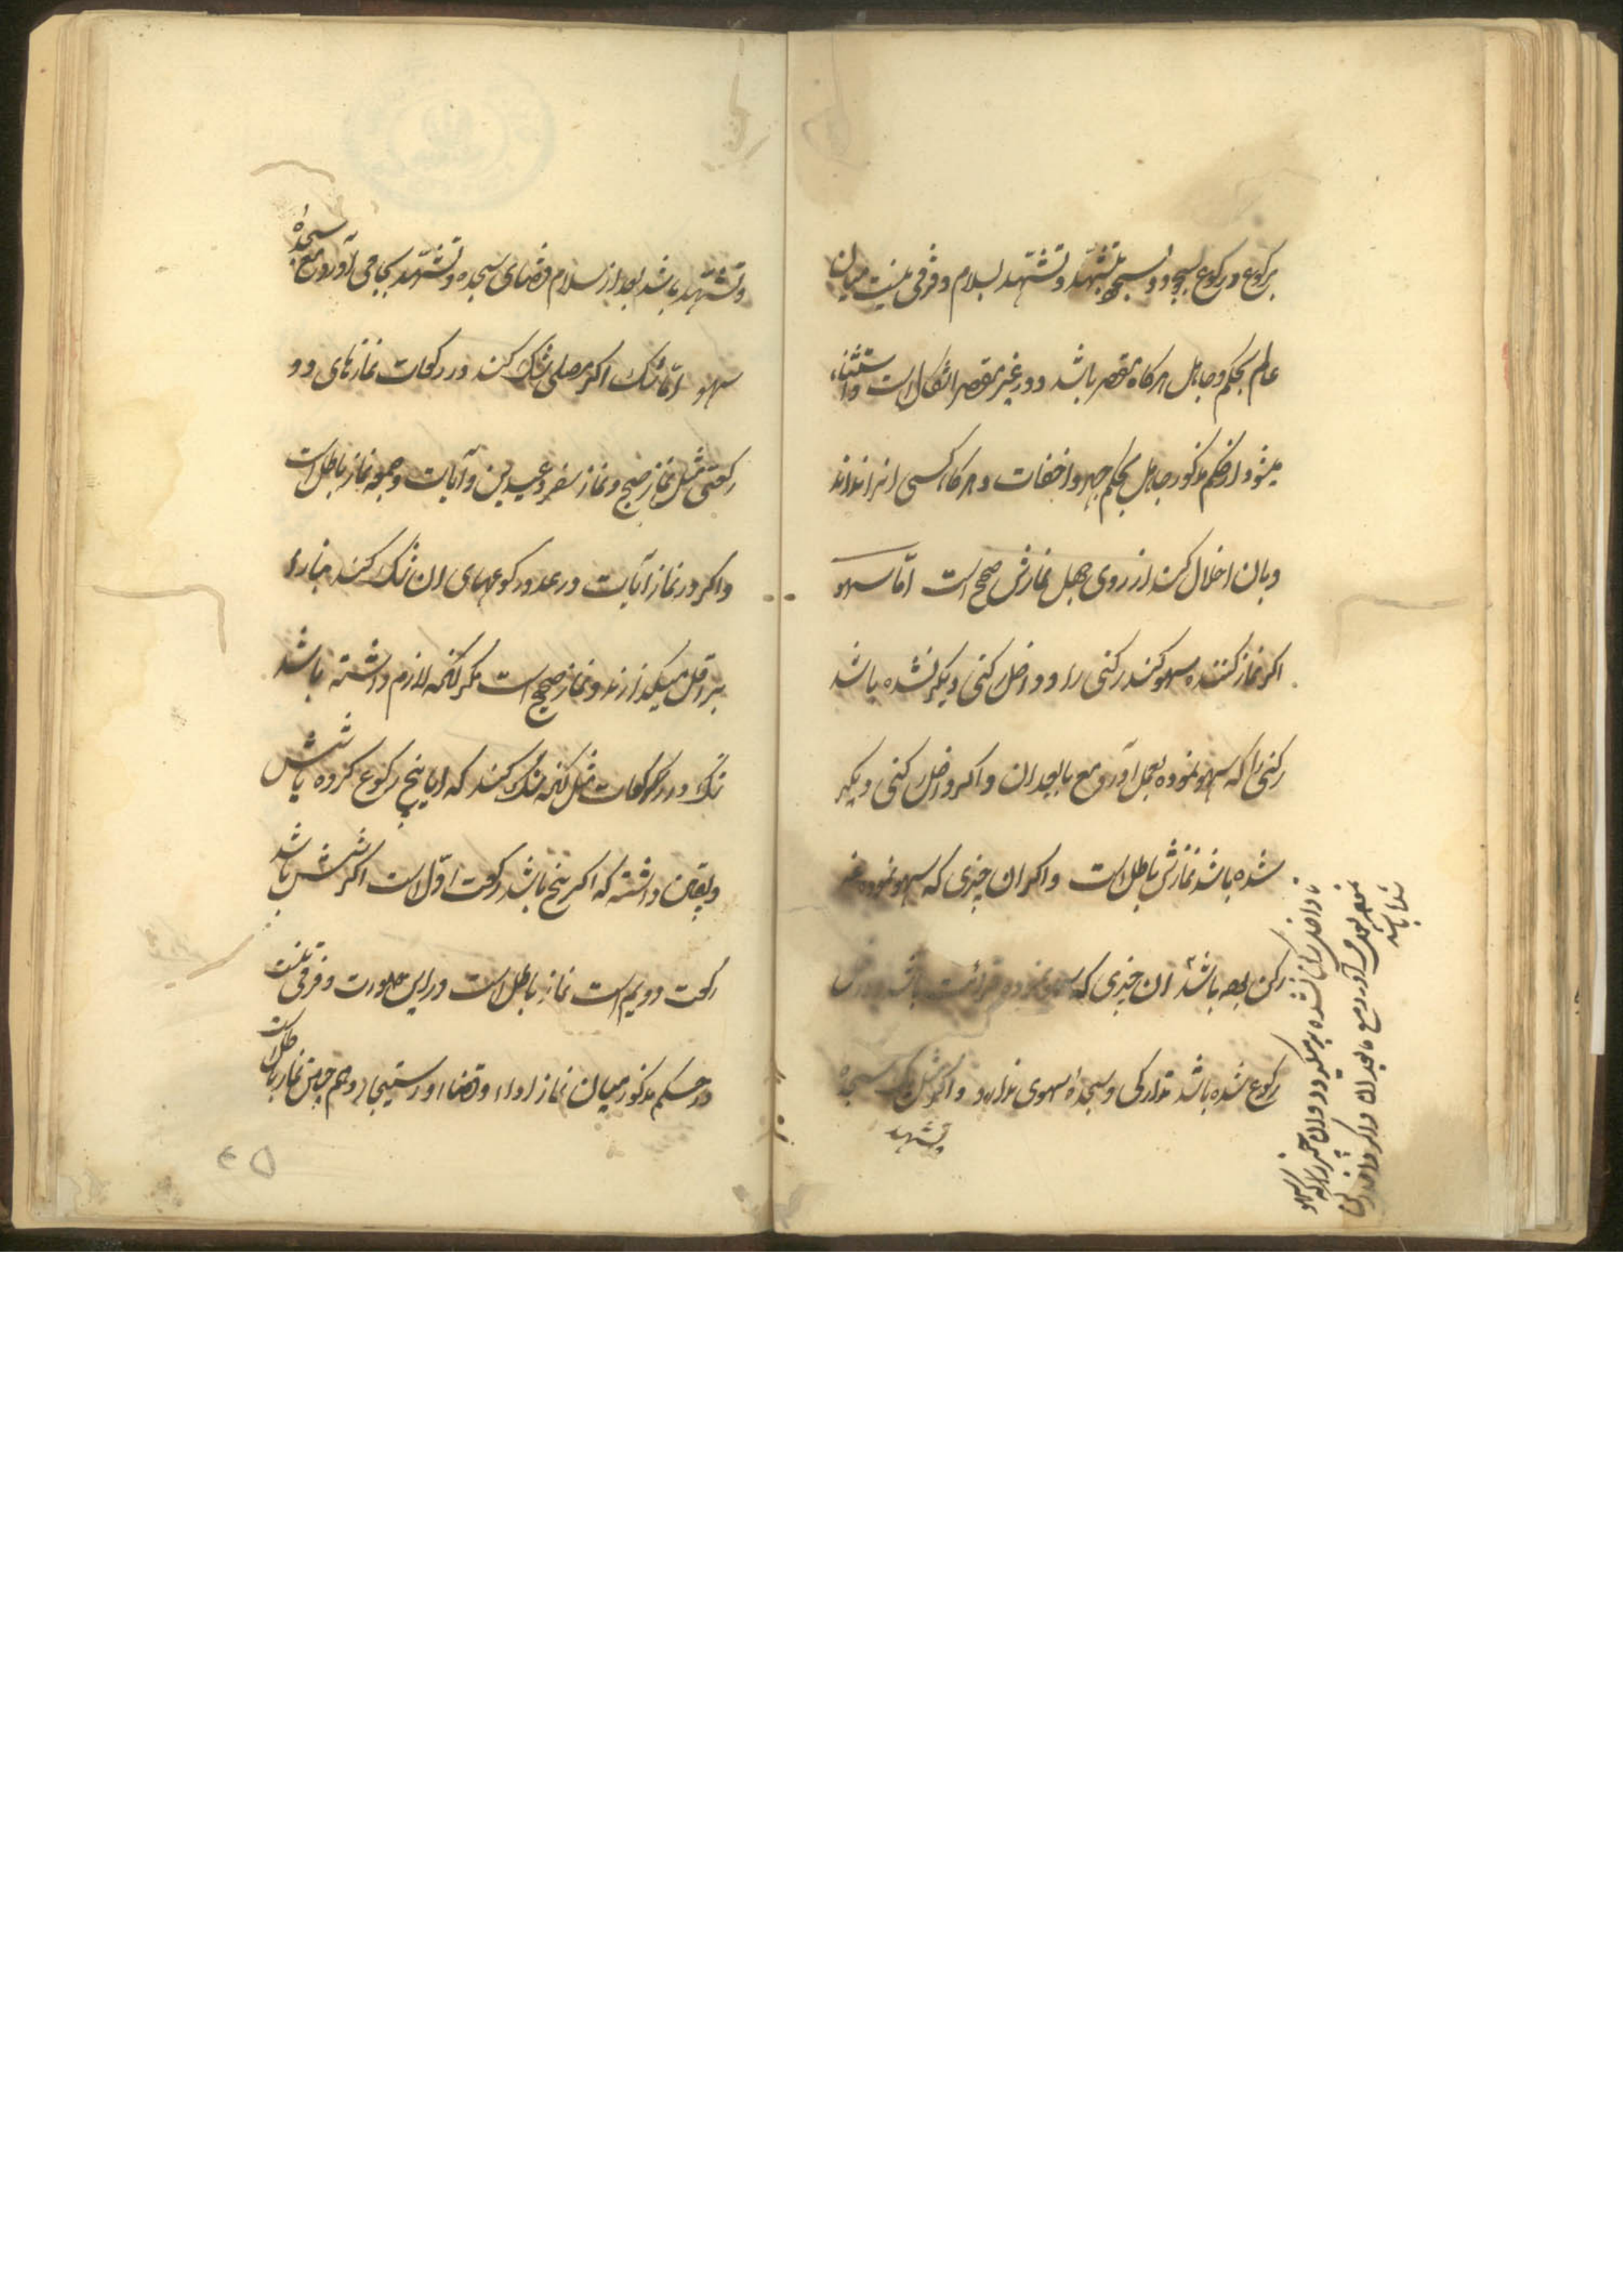 برکوع و رکوع بسجود و سجود بتشهد و تشهد بسلام و فرقی نیست میان
عالم بحکم و جاهل هرکاه مقصر باشد و در غیر مقصر اشکال است و استثناء
میشود از حکم مذکور جاهل بحکم جهر و اخفات و هرکاه کسی انرا نداند
و بان اخلال کند از روی جهل نمازش صحیح است امّا سهو
اکر نماز کننده سهو کند رکنی را و داخل رکنی دیکر نشده باشد
رکنی را که سهو نموده بعمل آورد مع مابعد ان و اکر داخل رکنی دیکر
شده باشد نمازش باطل است و اکر ان چیزی که سهو نموده غیر
رکن بوده باشد ان چیزی که سهو نموده قرائت باشد و در
رکوع شده باشد تدارکی و سجدهٔ سهوی ندارد و اکر مثل یک سجده
و تشهد
تا داخل رکن نشده برمیکردد و ان چیز را که سهو
نموده بعمل می آورد مع مابعد ان و اکر داخل رکن
شده باشد
و تشهّد باشد بعد از سلام قضای سجده و تشهّد بجا می آورد مع سجدهٔ
سهو امّا شک اکر مصلی شک کند در رکعات نمازهای دو
رکعتی مثل نماز صبح و نماز سفر و عیدین و آیات و جمعه نماز باطل است
و اکر در نماز آیات در عدد رکوعهای ان شک کند بنا را
بر اقل میکذارند و نماز صحیح است مکر آنکه لازم داشته باشد
شک در رکعات مثل آنکه شک کند که ایا پنج رکوع کرده یا شش
و یقین داشته که اکر پنج باشد رکعت اوّل است اکر شش باشد
رکعت دویم است نماز باطل است در این صورت و فرقی نیست
در حکم مذکور میان نماز اداء و قضا و استیجار و هم چنین نماز باطل است
۴۵